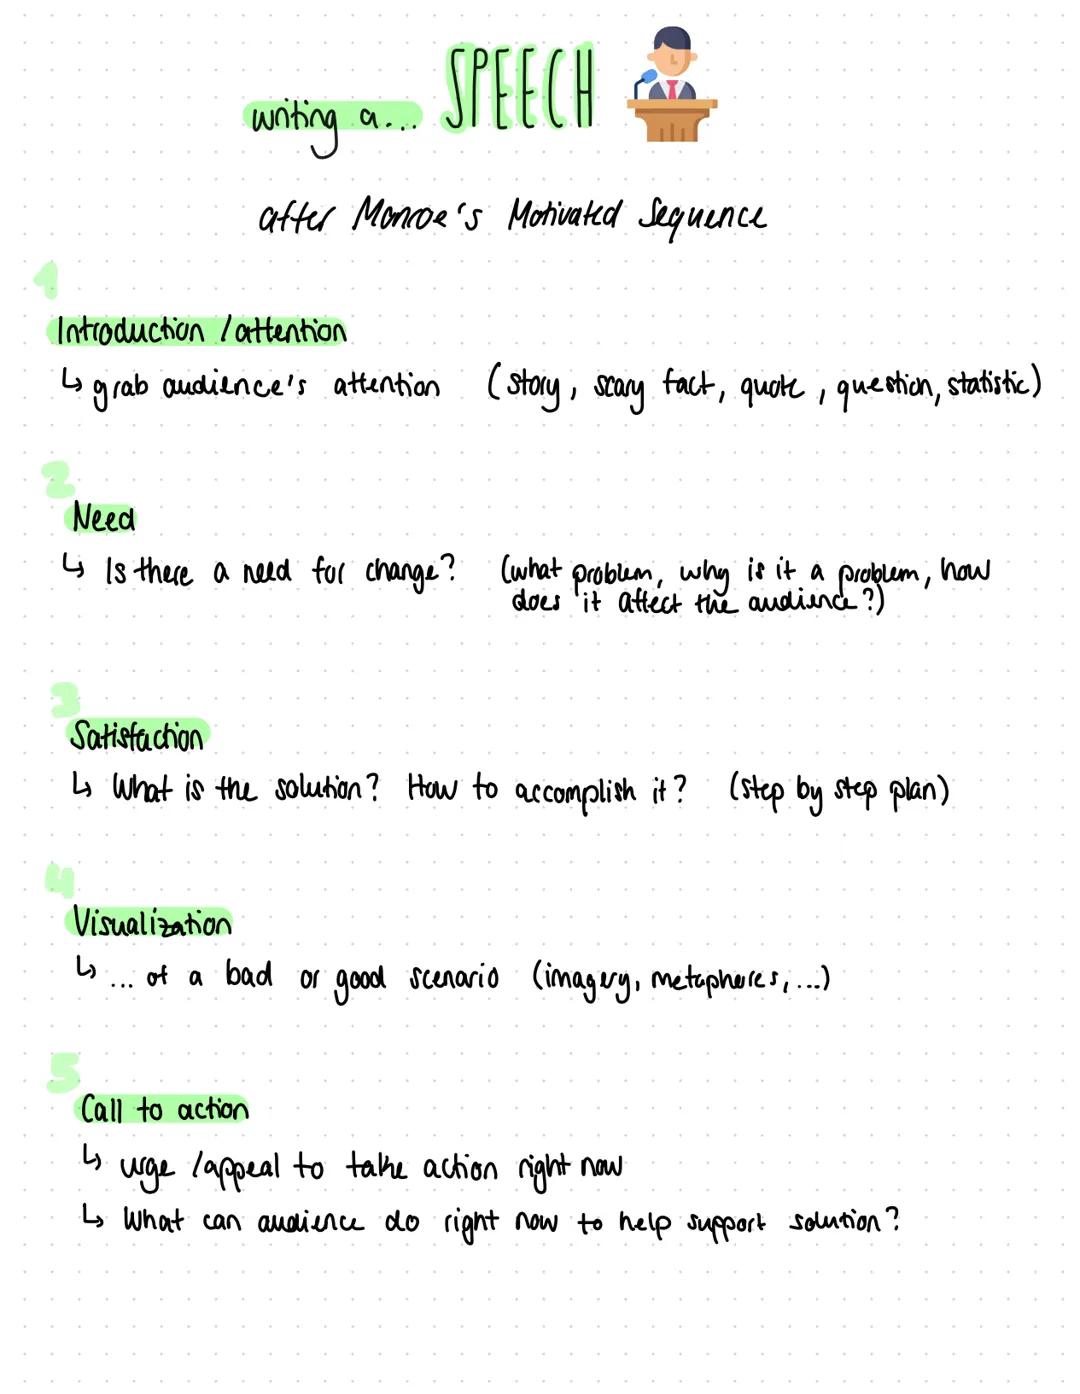 writing a... SPEECH
after Monroe's Motivated Sequence
1
Introduction / attention
↳ grab audience's attention (story, scary fact, quote, question, statistic)
2
Need
↳ Is there a need for change? (what problem, why is it a problem, how
does it affect the audience?)
3
Satisfaction
↳ What is the solution? How to accomplish it? (step by step plan)
4
Visualization
↳ ... of a bad or good scenario (imagery, metaphores, ...)
5
Call to action
↳ urge / appeal to take action right now
↳ What can audience do right now to help support solution?